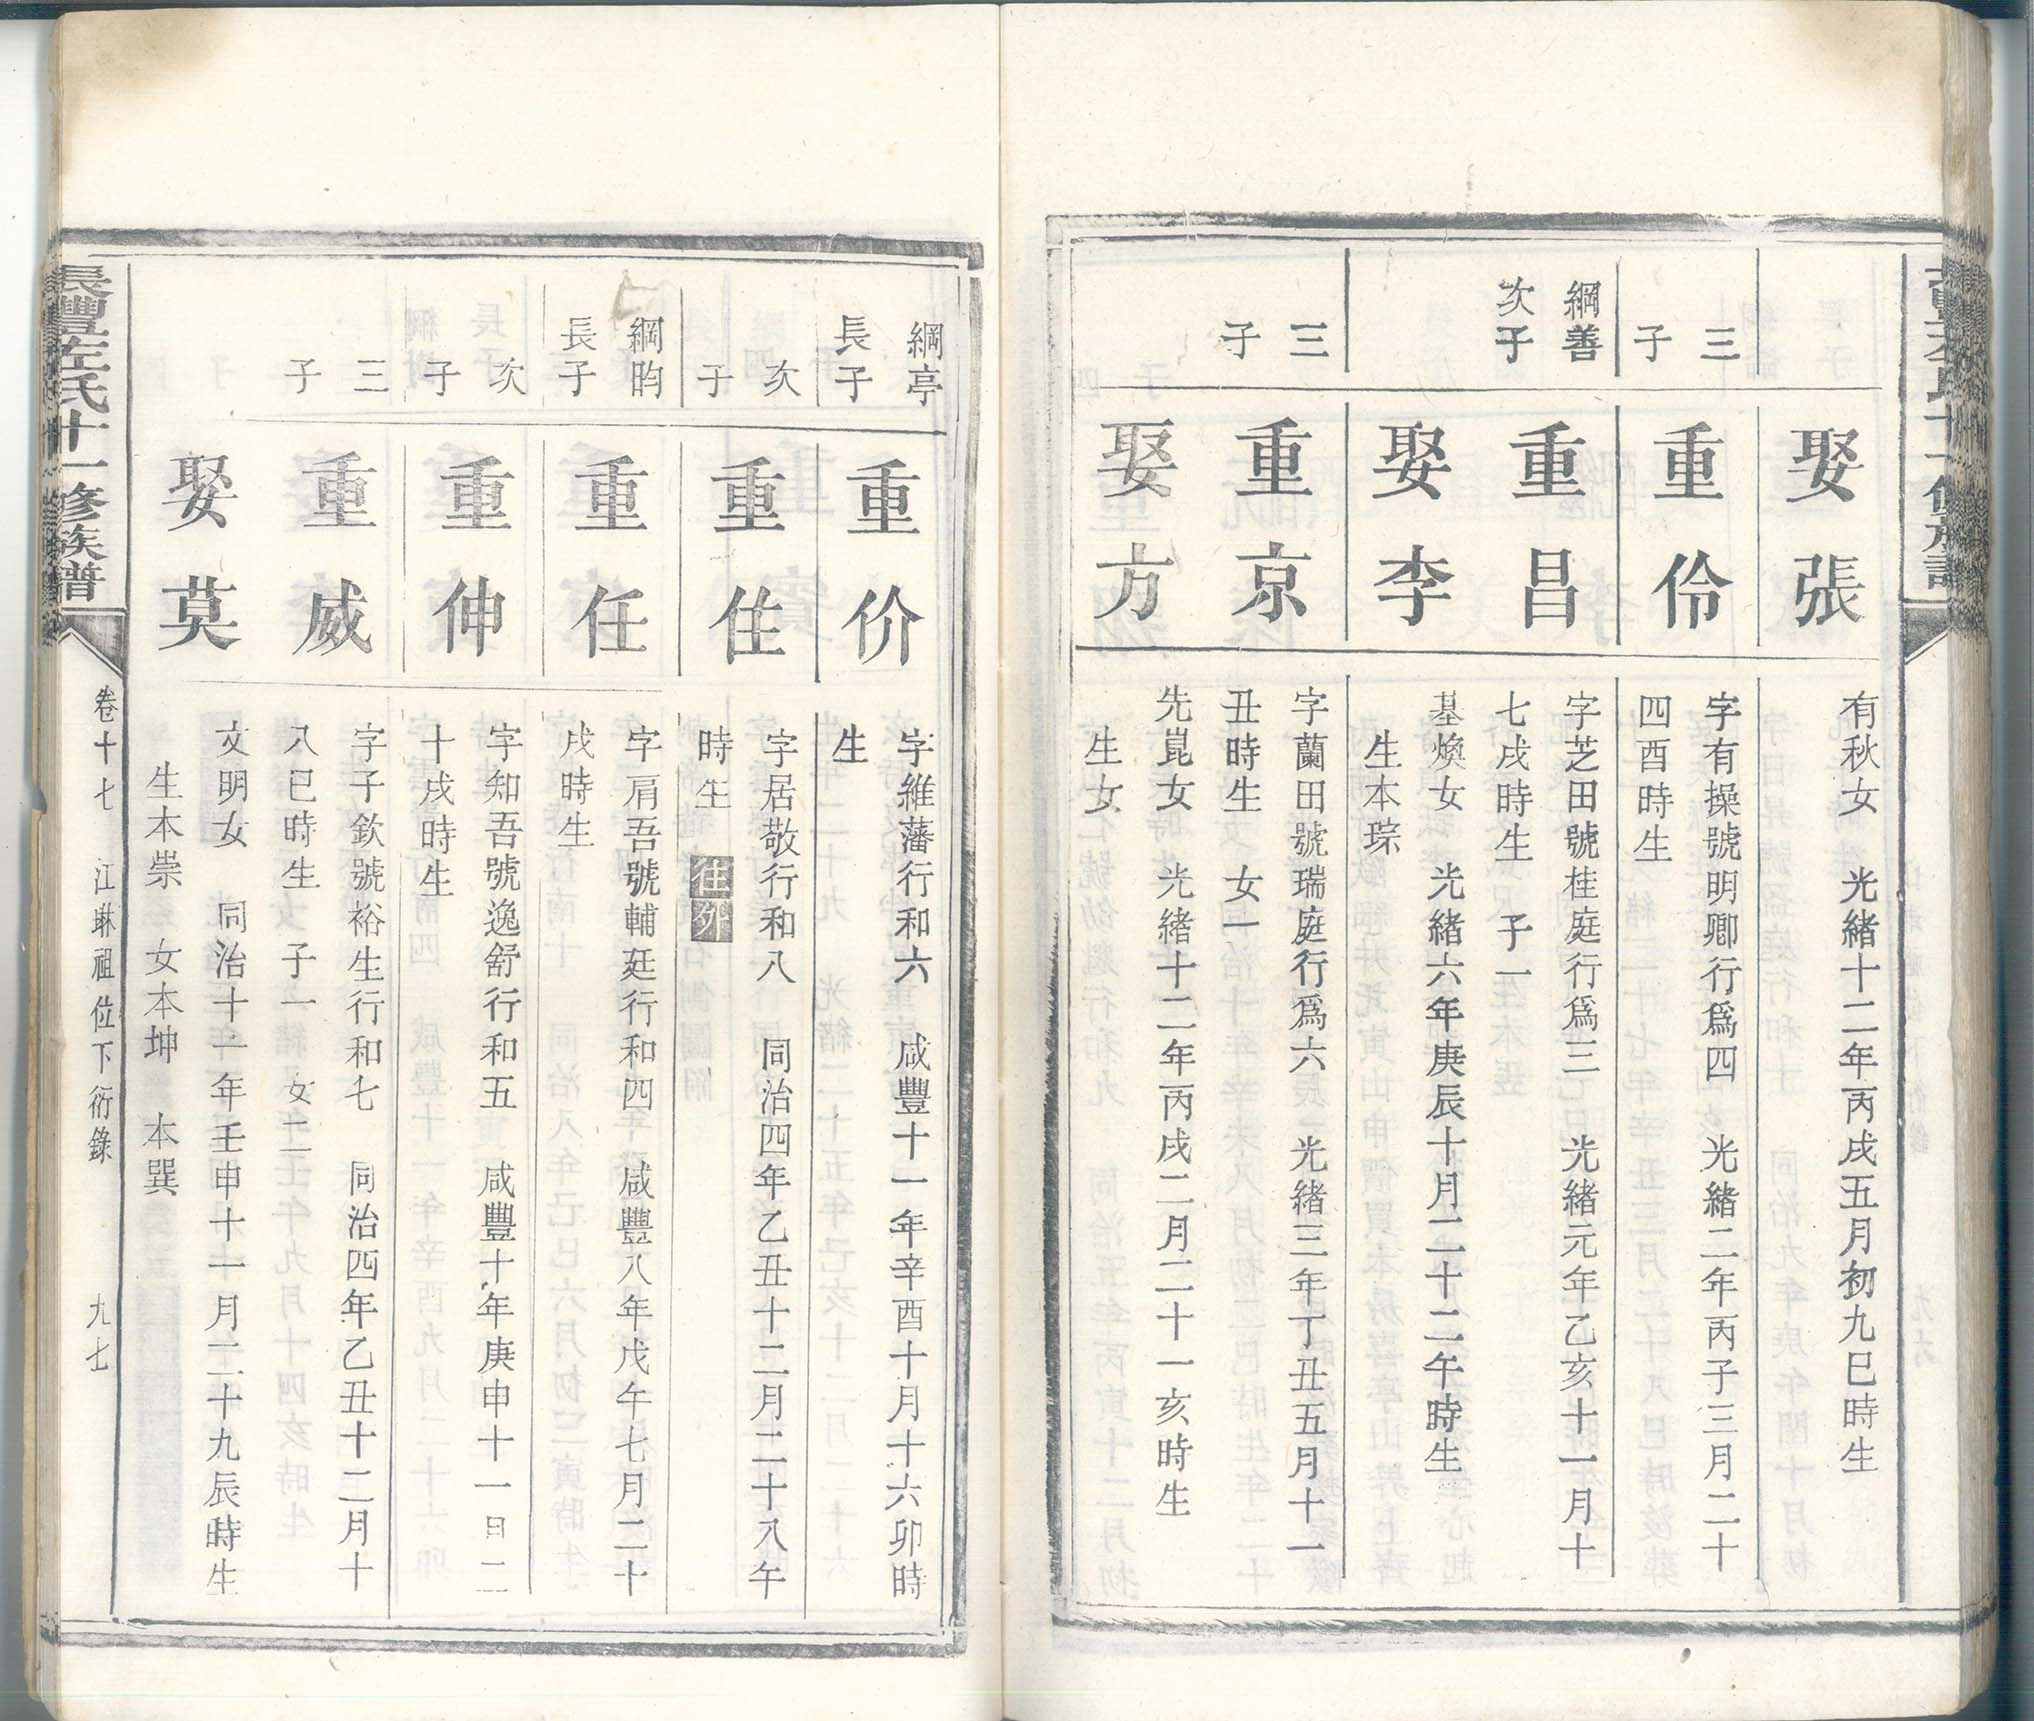 娶張
有秋女 光緒十二年丙戌五月初九巳時生
三子
重伶
字有操號明卿行爲四 光緒二年丙子三月二十
四酉時生
綱善次子
重昌
字芝田號桂庭行爲三 光緒元年乙亥十一月十
七戌時生 子一
娶李
基煥女 光緒六年庚辰十月二十二午時生
生本琮
三子
重京
字蘭田號瑞庭行爲六 光緒三年丁丑五月十一
丑時生 女一
娶方
先崑女 光緒十二年丙戌二月二十一亥時生
生女
綱亭長子
重价
字維藩行和六 咸豐十一年辛酉十月十六卯時
生
次子
重住
字居敬行和八 同治四年乙丑十二月二十八午
時生 往外
綱昀長子
重任
字肩吾號輔廷行和四 咸豐八年戊午七月二十
戌時生
次子
重伸
字知吾號逸舒行和五 咸豐十年庚申十一月二
十戌時生
三子
重威
字子欽號裕生行和七 同治四年乙丑十二月十
八巳時生 子一 女二
娶莫
文明女 同治十一年壬申十一月二十九辰時生
生本崇 女本坤 本巽
長豐左氏十一修族譜
卷十七 江琳祖位下衍錄 九七